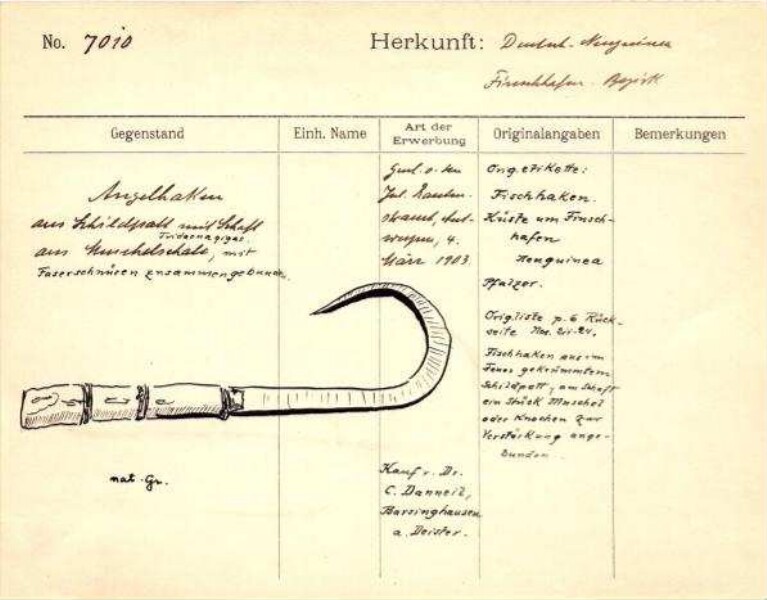 No. 7010
Herkunft: Deutsch-Neuguinea
Finschhafen-Bezirk
Gegenstand
Einh. Name
Art der
Erwerbung
Originalangaben
Bemerkungen
Angelhaken
aus Schildpatt mit Schaft
Tridacna gigas
aus Muschelschale, mit
Faserschnüren zusammengebunden.
nat. Gr.
März 1903.
Kauf v. Dr.
C. Danneil,
Barsinghausen
a. Deister.
Orig. etikette:
Fischhaken.
Küste um Finsch-
hafen
Neuguinea
Pfalzer.
Orig. liste p. 6 Rück-
seite Nos.
Fischhaken aus im
Feuer gekrümmtem
Schildpatt, am Schaft
ein Stück Muschel
oder Knochen zur
Verstärkung ange-
bunden